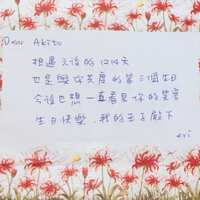 Dear Akito
相遇之後的1214天
也是與你共度的第三個生日
今後也想一直看見你的笑容
生日快樂,我的王子殿下